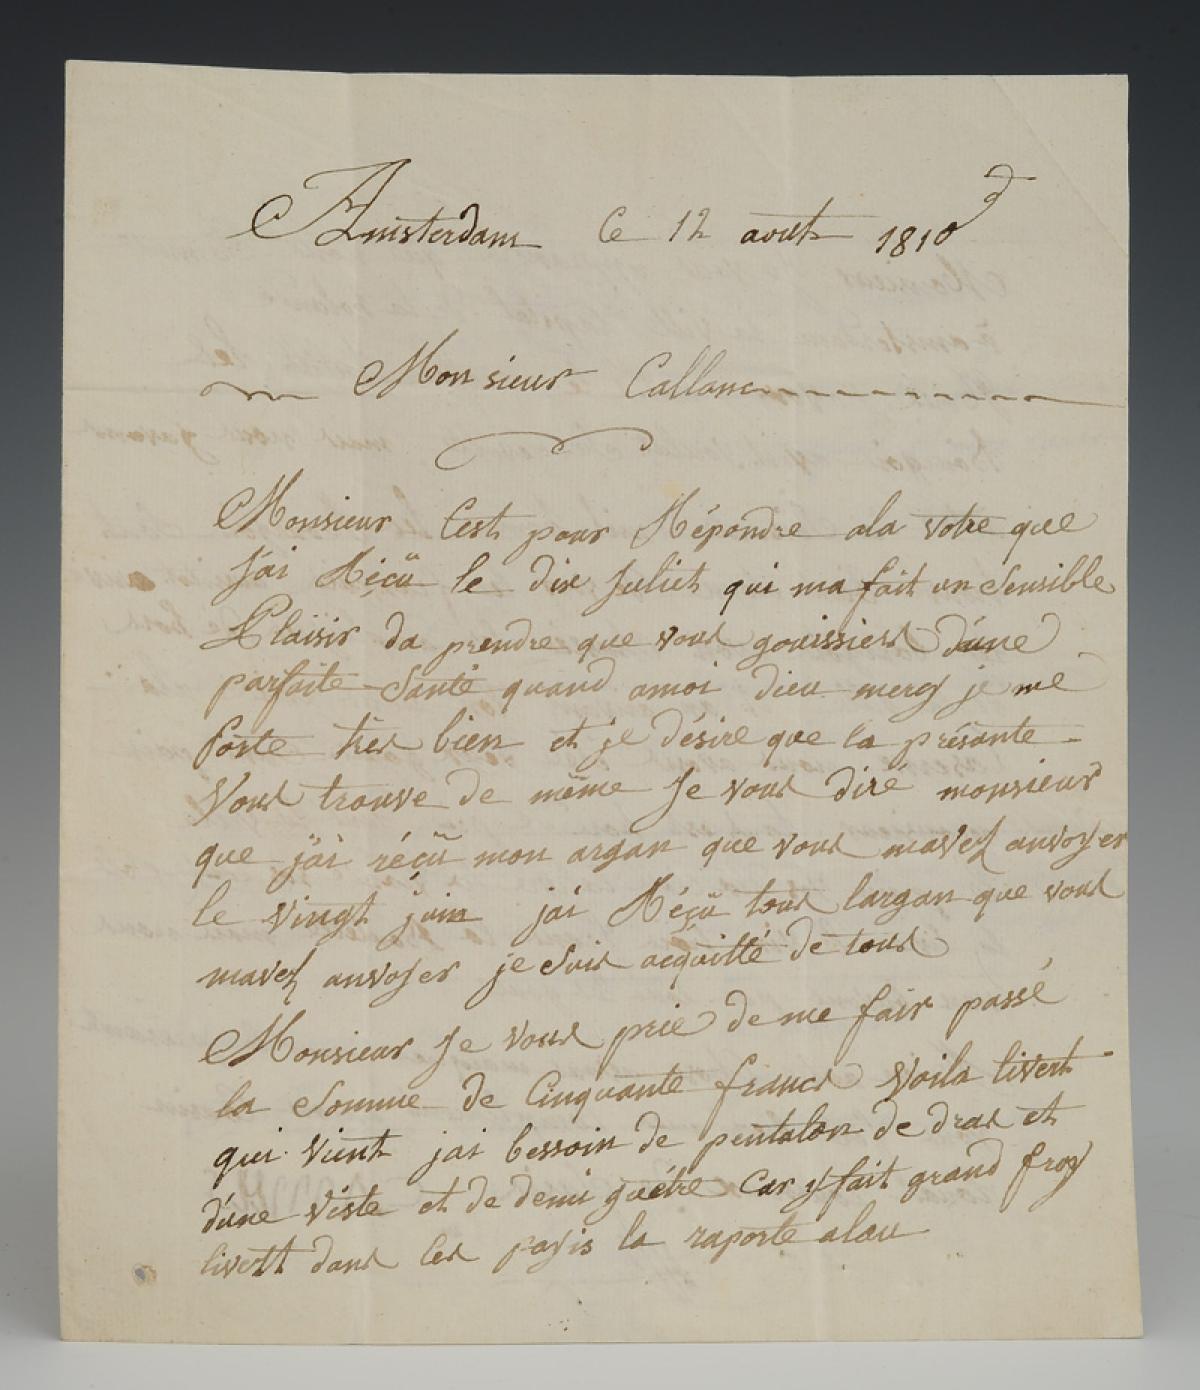 Amsterdam Ce 12 aout 1810
Monsieur Callane
Monsieur Cest pour Répondre ala votre que
J'ai Réçü le dix Juliet qui ma fait un Sensible
Plaisir da prendre que vous gouissiers d'une
parfaite Santé quand amoi dieu mercy je me
porte tres bien et je désire que la présante
Vous trouve de même Je vous diré monsieur
que j'ai réçü mon argan que vous mavez anvoyer
le vingt juin jai Réçü tous largan que vous
mavez anvoyer je Suis acquitté de tous
Monsieur Je vous prie de me fair passé
la Somme de Cinquante francs Voila livert
qui vient jai bessoin de pentalon de dras et
d'une viste et de demi guétre Car y fait grand froy
livertt dans les payis la raporte alau